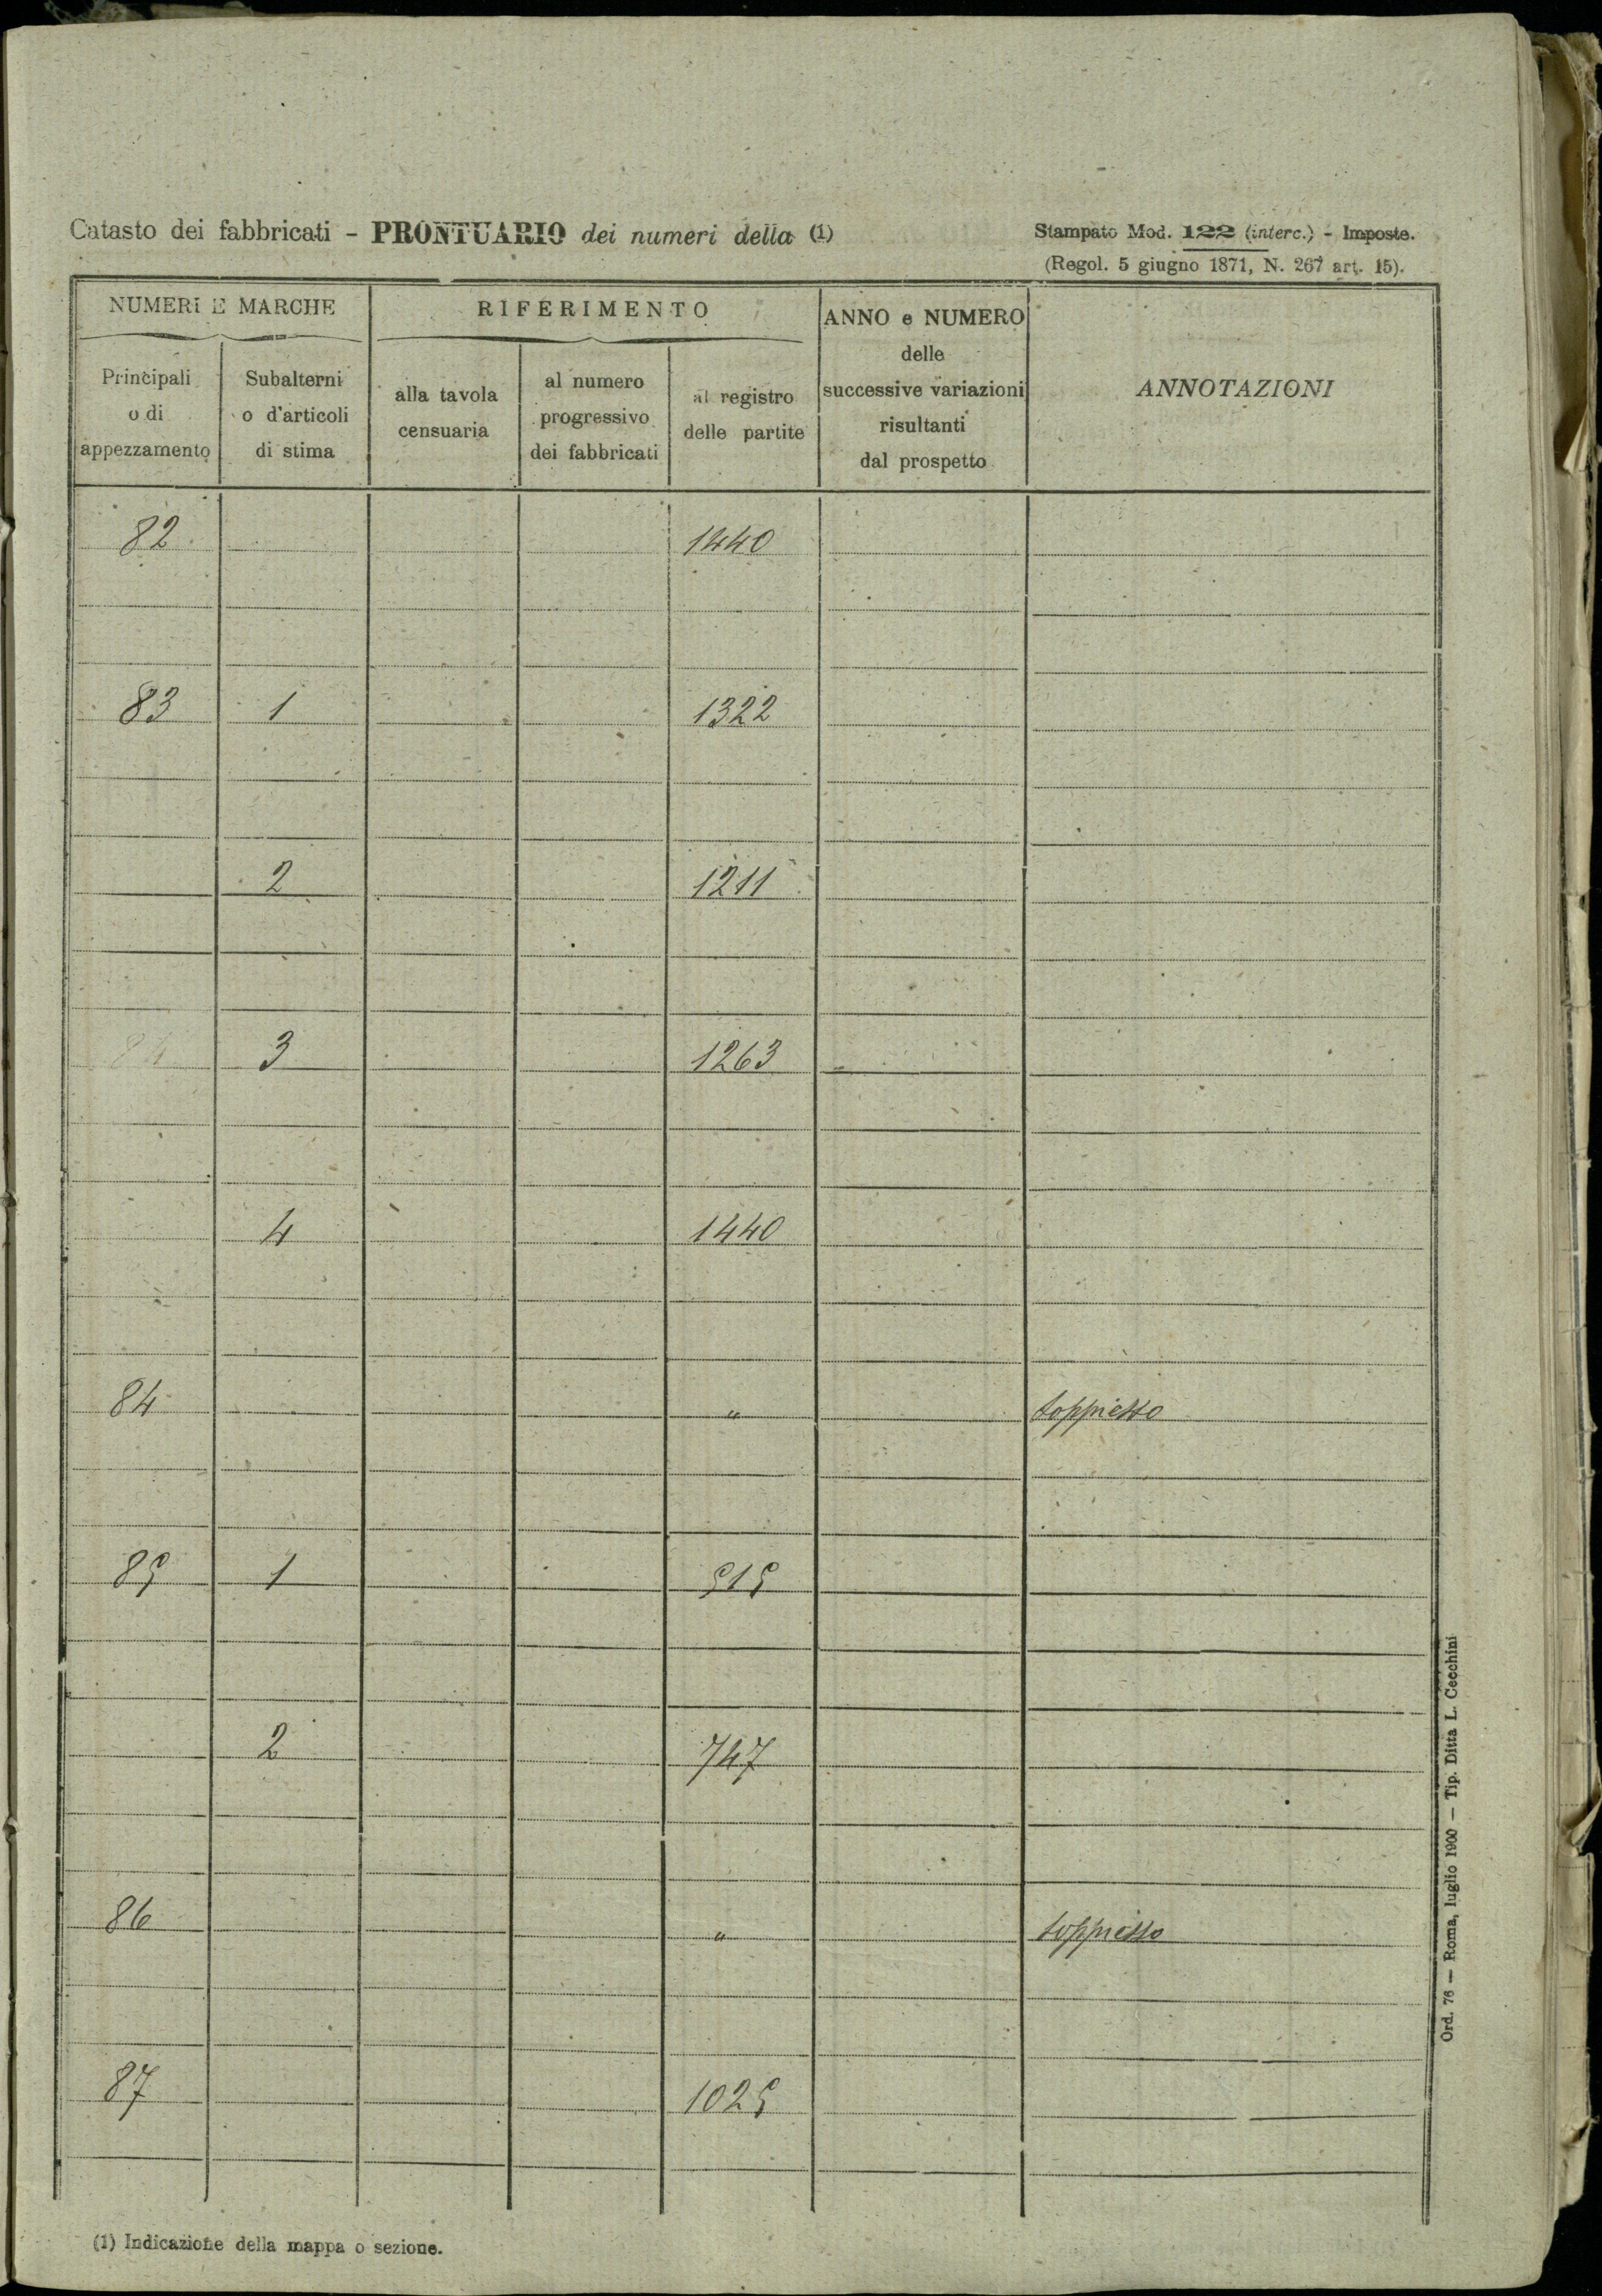 Catasto dei fabbricati - PRONTUARIO dei numeri della (1)
Stampato Mod. 122 (interc.) - Imposte.
(Regol. 5 giugno 1871, N. 267 art. 15).
NUMERI E MARCHE
RIFERIMENTO
ANNO e NUMERO
delle
successive variazioni
risultanti
dal prospetto
ANNOTAZIONI
Principali
o di
appezzamento
Subalterni
o d'articoli
di stima
alla tavola
censuaria
al numero
progressivo
dei fabbricati
al registro
delle partite
82 1440
83 1 1322
2 1211
84 3 1263
4 1440
84 " soppresso
85 1 515
2 747
86 " soppresso
87 1025
Ord. 76 — Roma, luglio 1900 — Tip. Ditta L. Cecchini
(1) Indicazione della mappa o sezione.